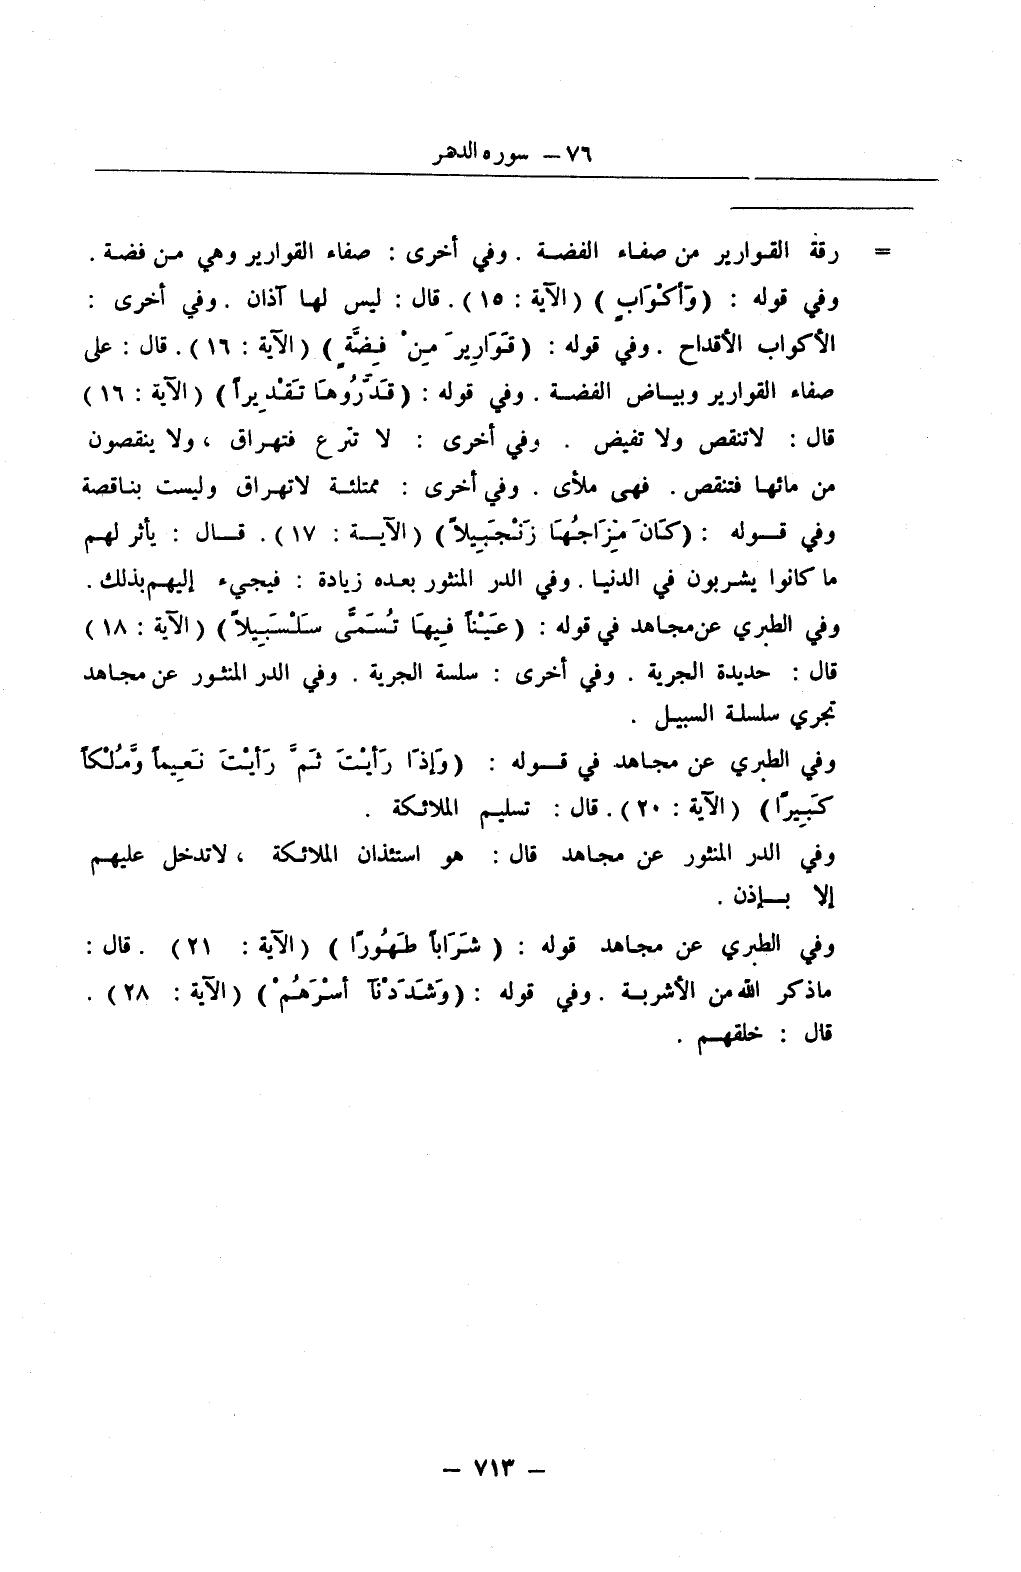 ٧٦ – سوره الدهر
= رقة القوارير من صفاء الفضة . وفي أخرى : صفاء القوارير وهي من فضة .
وفي قوله : ( وَأَكْوَابٍ ) ( الآية : ١٥ ) . قال : ليس لها آذان . وفي أخرى :
الأكواب الأقداح . وفي قوله : ( قَوَارِيرَ مِنْ فِضَّةٍ ) ( الآية : ١٦ ) . قال : على
صفاء القوارير وبياض الفضة . وفي قوله : ( قَدَّرُوهَا تَقْدِيراً ) ( الآية : ١٦ )
قال : لاتنقص ولا تفيض . وفي أخرى : لا تترع فتهراق ، ولا ينقصون
من مائها فتنقص . فهى ملأى . وفي أخرى : ممتلئة لاتهراق وليست بناقصة
وفي قوله : ( كَانَ مِزَاجُهَا زَنْجَبِيلاً ) ( الآية : ١٧ ) . قال : يأثر لهم
ما كانوا يشربون في الدنيا . وفي الدر المنثور بعده زيادة : فيجيء إليهم بذلك .
وفي الطبري عن مجاهد في قوله : ( عَيْناً فِيهَا تُسَمَّى سَلْسَبِيلاً ) ( الآية : ١٨ )
قال : حديدة الجرية . وفي أخرى : سلسة الجرية . وفي الدر المنثور عن مجاهد
تجري سلسلة السبيل .
وفي الطبري عن مجاهد في قوله : ( وَإِذَا رَأَيْتَ ثَمَّ رَأَيْتَ نَعِيماً وَّمُلْكاً
كَبِيرًا ) ( الآية : ٢٠ ) . قال : تسليم الملائكة .
وفي الدر المنثور عن مجاهد قال : هو استئذان الملائكة ، لاتدخل عليهم
إلا بإذن .
وفي الطبري عن مجاهد قوله : ( شَرَاباً طَهُورًا ) ( الآية : ٢١ ) . قال :
ماذكر الله من الأشربة . وفي قوله : ( وَشَدَدْنَآ أَسْرَهُمْ ) ( الآية : ٢٨ ) .
قال : خلقهم .
– ٧١٣ –